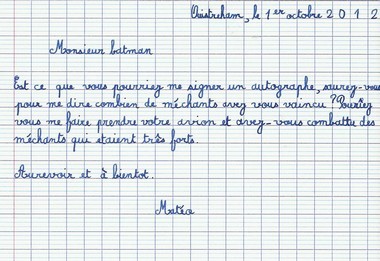 Ouistreham, le 1er octobre 2012
Monsieur batman
Est ce que vous pourriez me signer un autographe, saurez-vous
pour me dire combien de méchants avez vous vaincu ? Pouriez
vous me faire prendre votre avion et avez-vous combattu des
méchants qui étaient très forts.
Aurevoir et à bientot.
Matéo